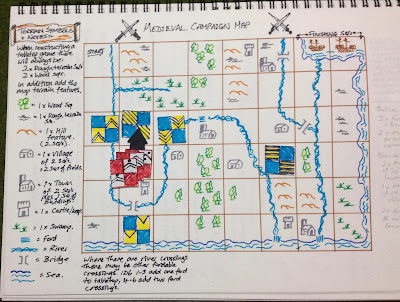 Medieval Campaign Map
Terrain Symbols
Notes
When constructing a
tabletop game there
will always be:
2 x Rough terrain Sqs
2 x Wood Sqs.
In addition add the
map terrain features.
= 1 x Wood Sq
= 1 x Rough terrain
Sq.
= 1 x Hill
feature.
(2 Sqs).
= 1 x Village
of 2 Sqs
+ 2 Sqs of fields.
= 1 x Town
of 2 Sqs
Buildings
= 1 x Castle/
= 1 x Swamp.
= Ford
= River
= Bridge
= Sea.
START
Finishing Sq.
Where there are river crossings
there may be other fordable
crossings. 1D6 1-3 add one ford
to tabletop, 4-6 add two ford
crossings.